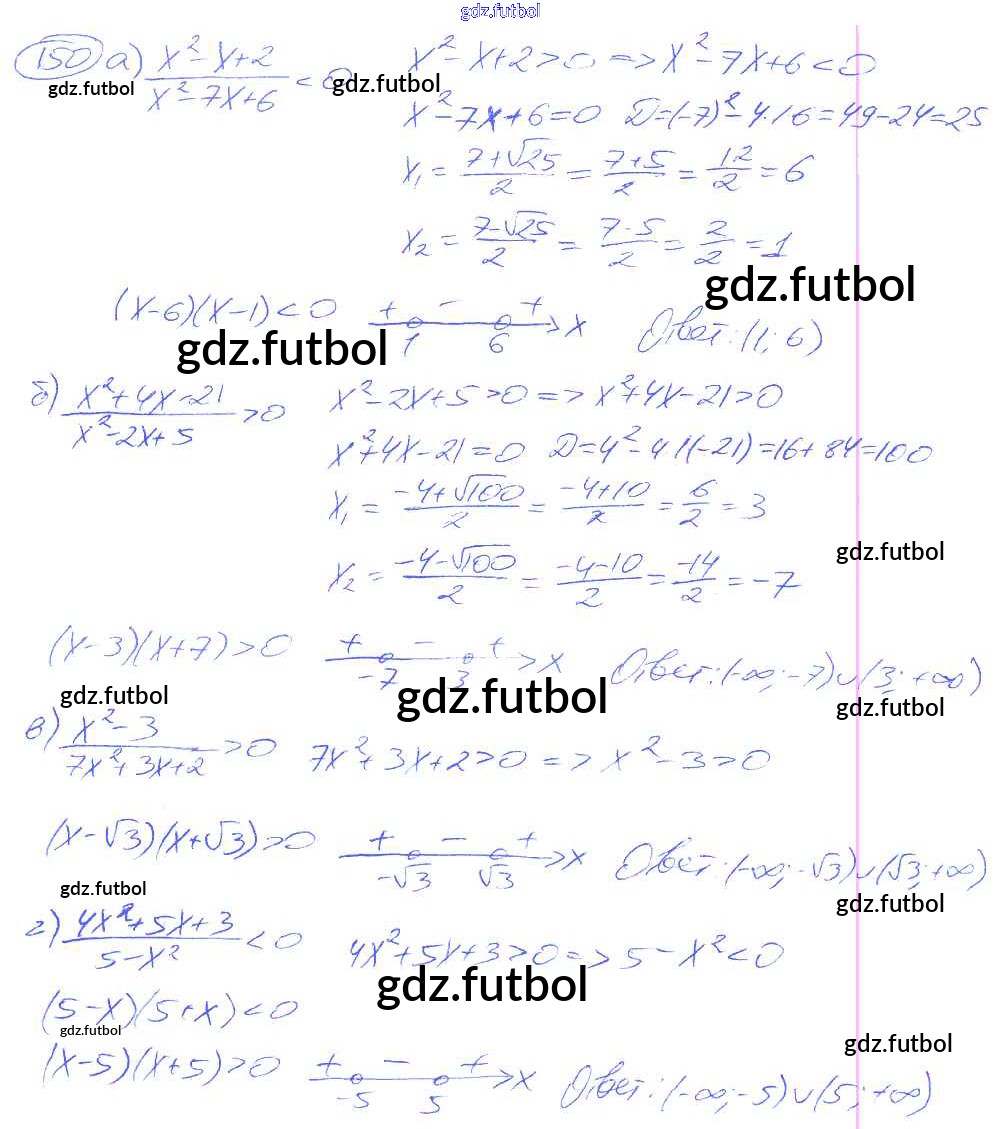 gdz.futbol
150 а) (x²-x+2)/(x²-7x+6) < 0   x²-x+2>0 => x²-7x+6<0
gdz.futbol gdz.futbol
x²-7x+6=0   D=(-7)²-4·1·6=49-24=25
x₁ = (7+√25)/2 = (7+5)/2 = 12/2 = 6
x₂ = (7-√25)/2 = (7-5)/2 = 2/2 = 1
gdz.futbol
(x-6)(x-1)<0   + - + 1 6 x   Ответ: (1; 6)
gdz.futbol
б) (x²+4x-21)/(x²-2x+5) > 0   x²-2x+5>0 => x²+4x-21>0
x²+4x-21=0   D=4²-4·1(-21)=16+84=100
x₁ = (-4+√100)/2 = (-4+10)/2 = 6/2 = 3
gdz.futbol
x₂ = (-4-√100)/2 = (-4-10)/2 = -14/2 = -7
(x-3)(x+7)>0   + - + -7 3 x   Ответ: (-∞; -7)∪(3; +∞)
gdz.futbol gdz.futbol gdz.futbol
в) (x²-3)/(7x²+3x+2) > 0   7x²+3x+2>0 => x²-3>0
(x-√3)(x+√3)>0   + - + -√3 √3 x   Ответ: (-∞; -√3)∪(√3; +∞)
gdz.futbol gdz.futbol
г) (4x²+5x+3)/(5-x²) < 0   4x²+5x+3>0 => 5-x²<0
gdz.futbol
(5-x)(5+x)<0
gdz.futbol gdz.futbol
(x-5)(x+5)>0   + - + -5 5 x   Ответ: (-∞; -5)∪(5; +∞)